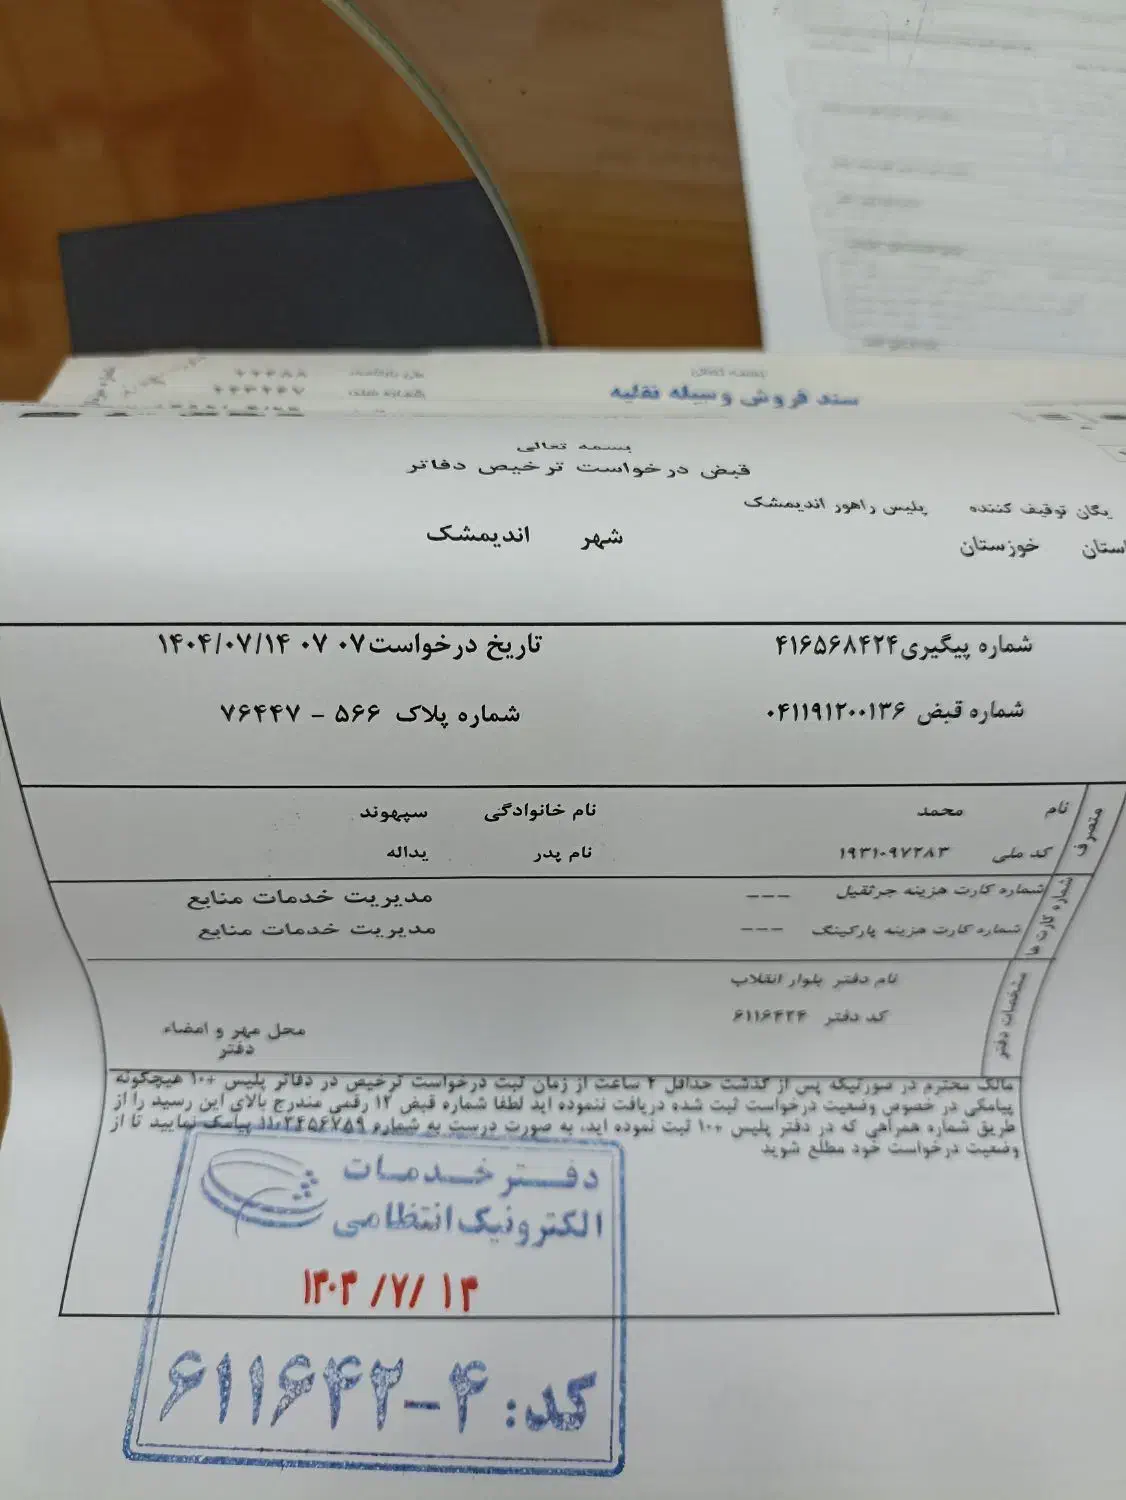 سند فروش وسیله نقلیه
بسمه تعالی
قبض درخواست ترخیص دفاتر
یگان توقیف کننده پلیس راهور اندیمشک
استان خوزستان شهر اندیمشک
شماره پیگیری ۴۱۶۵۶۸۴۲۴ تاریخ درخواست ۰۷ ۰۷ ۱۴۰۴/۰۷/۱۴
شماره قبض ۰۴۱۱۹۱۲۰۰۱۳۶ شماره پلاک ۵۶۶ - ۷۶۴۴۷
متصرف
نام محمد نام خانوادگی سپهوند
کد ملی ۱۹۳۱۰۹۷۲۸۳ نام پدر یداله
شماره کارت ها
شماره کارت هزینه جرثقیل --- مدیریت خدمات منابع
شماره کارت هزینه پارکینگ --- مدیریت خدمات منابع
مشخصات دفتر
نام دفتر بلوار انقلاب
کد دفتر ۶۱۱۶۴۲۴
محل مهر و امضاء
دفتر
مالک محترم در صورتیکه پس از گذشت حداقل ۲ ساعت از زمان ثبت درخواست ترخیص در دفاتر پلیس +۱۰ هیچگونه
پیامکی در خصوص وضعیت درخواست ثبت شده دریافت ننموده اید لطفا شماره قبض ۱۲ رقمی مندرج بالای این رسید را از
طریق شماره همراهی که در دفتر پلیس +۱۰ ثبت نموده اید، به صورت درست به شماره ۱۱۰۲۴۵۶۷۵۹ پیامک نمایید تا از
وضعیت درخواست خود مطلع شوید
دفتر خدمات
الکترونیک انتظامی
۱۴۰۴/۷/۱۴
کد: ۴-۶۱۱۶۴۲